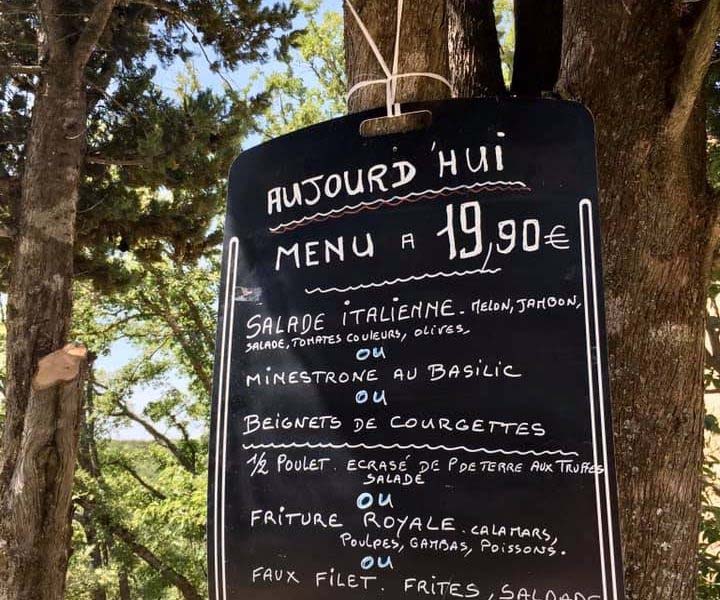 AUJOURD'HUI
MENU A 19,90€
SALADE iTALIENNE. MELON, JAMBON,
SALADE, TOMATES COULEURS, OLIVES.
OU
MINESTRONE AU BASILIC
OU
BEIGNETS DE COURGETTES
1/2 POULET. ECRASÉ DE P DE TERRE AUX TRUFFES
SALADE
OU
FRITURE ROYALE. CALAMARS,
POULPES, GAMBAS, POISSONS.
OU
FAUX FILET. FRITES, SALDADE